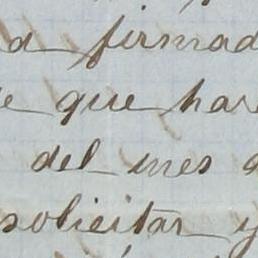 a firmad
e que hare
del mes d
solicitar y